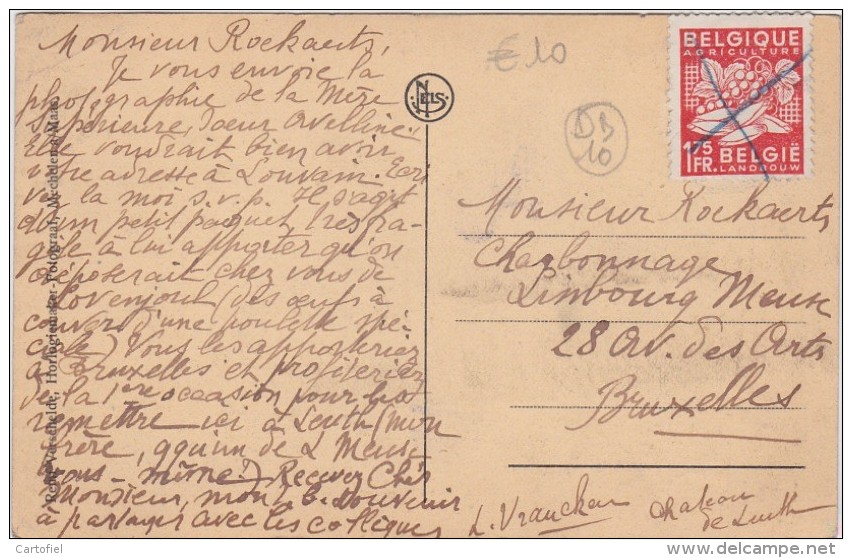 Monsieur Rockaerts,
Je vous envoie la
photographie de la Mère
Supérieure, Sœur Avelline.
Elle voudrait bien avoir
votre adresse à Louvain. Ecri
vez la moi s.v.p. Il s'agit
d'un petit paquet, très fra-
gile à lui apporter qu'on
déposerait chez vous de
Lovenjoul (des œufs à
couver d'une poulette spé-
ciale) Vous les apporteriez
à Bruxelles et profiteriez
de la 1ère occasion pour
remettre ici à Leuth (mon
frère, qqu'un de L Meuse
vous-même!) Recevez Cher
Monsieur, mon souvenir
à partager avec les collègues
L. Vrancken
Château
de Leuth
NELS
€10
DB
10
BELGIQUE
AGRICULTURE
1F75
FR. BELGIË
LANDBOUW
Monsieur Rockaerts
Charbonnage
Limbourg Meuse
28 Av. des Arts
Bruxelles
René Verschelde, Horlogiemaker-Fotograaf, Mechelen a/Maas.
Cartofiel
delcampe.net